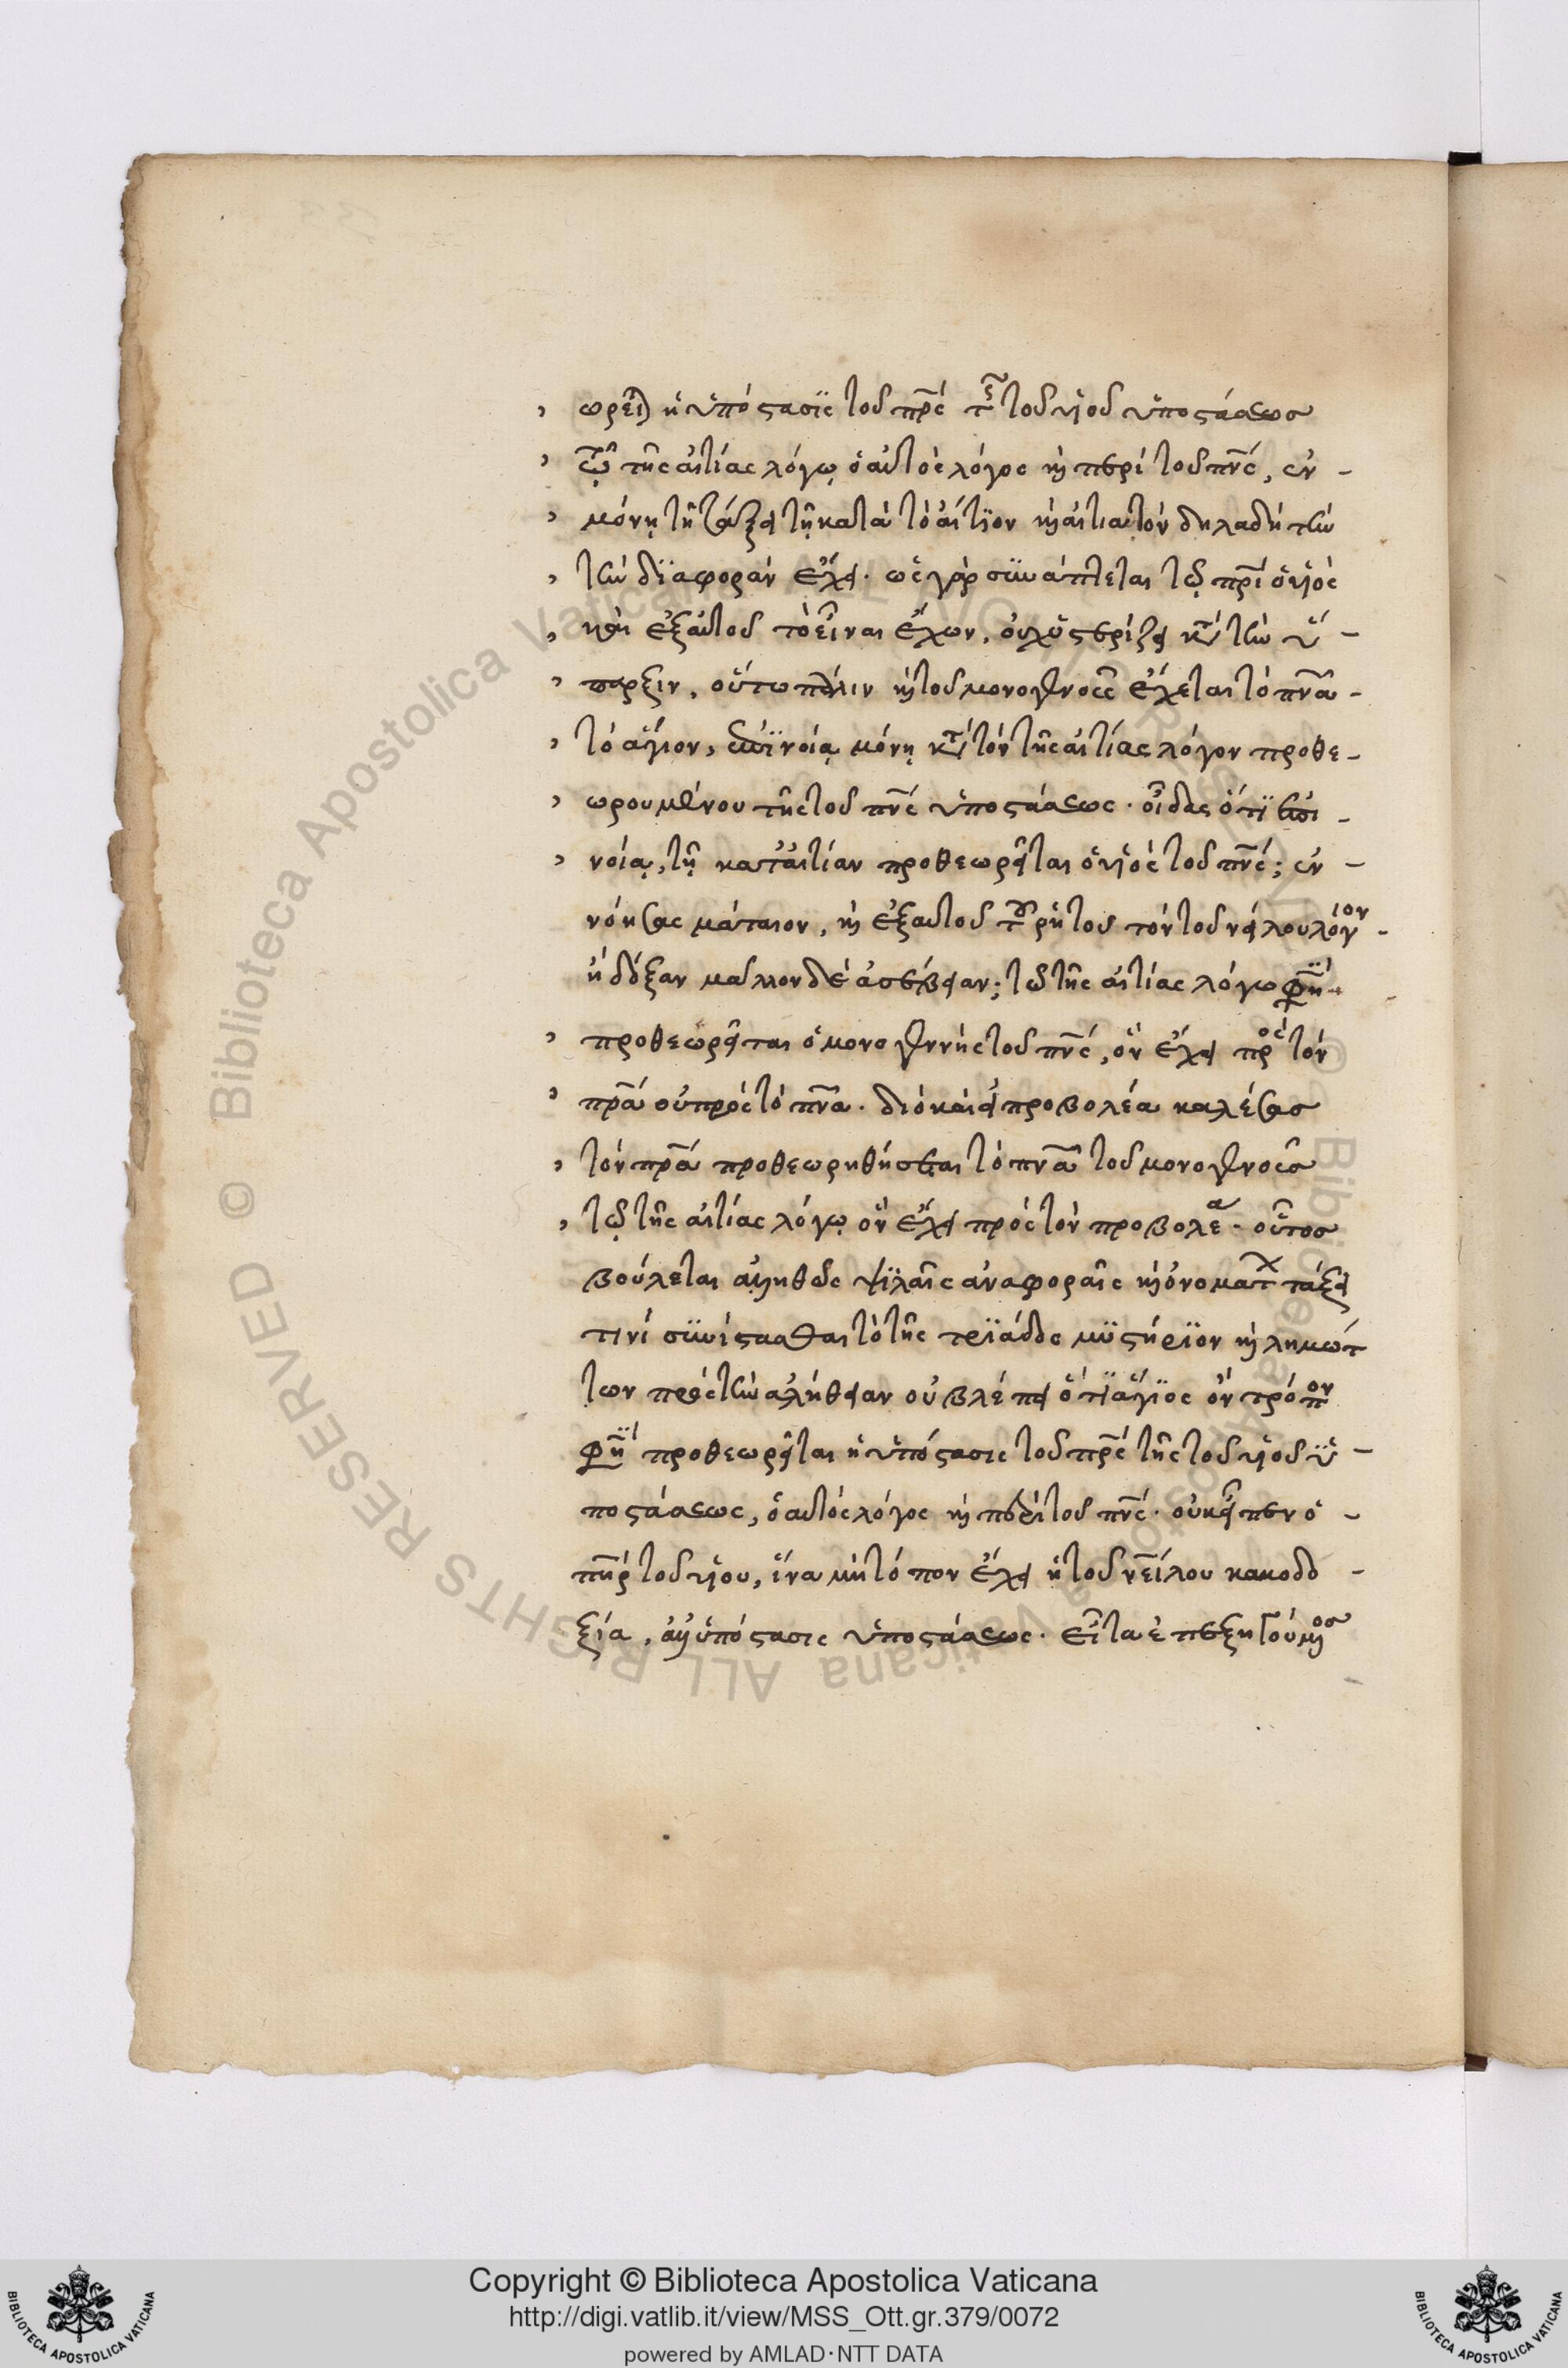 ωρεῖται ἡ ὑπόστασις τοῦ πρς τῆς τοῦ υἱοῦ ὑποστάσεως
τῷ τῆς αἰτίας λόγῳ ὁ αὐτὸς λόγος καὶ περὶ τοῦ πνς, ἐν -
μόνῃ τῇ τάξει τῇ κατὰ τὸ αἴτιον καὶ αἰτιατὸν δηλαδή την
τὴν διαφορὰν ἔχει. ὡς γὰρ συνάπτεται τῷ πρι ὁ υἱὸς
καὶ ἐξ αὐτοῦ τὸ εἶναι ἔχων, οὐχ ὑστερίζει κατὰ τὴν ὕ -
παρξιν, οὕτω πάλιν καὶ τοῦ μονογενοῦς ἔχεται τὸ πνα -
τὸ ἅγιον, ἐπινοίᾳ μόνῃ κατὰ τὸν τῆς αἰτίας λόγον προθε -
ωρουμένου τῆς τοῦ πνς ὑποστάσεως. οἶδας ὅτι ἐπι -
νοίᾳ, τῇ κατ' αἰτίαν προθεωρεῖται ὁ υἱὸς τοῦ πνς; ἐν -
νόησας μάταιον, καὶ ἐξ αὐτοῦ τοῦ ῥητοῦ τὸν τοῦ νείλου λόγον -
ἢ δόξαν μᾶλλον δὲ ἀσέβειαν; τῷ τῆς αἰτίας λόγῳ φησὶ
προθεωρεῖται ὁ μονογεννὴς τοῦ πνς, ὃν ἔχει πρὸς τὸν
πρα οὐ πρὸς τὸ πνα. διὸ καὶ εἰ προβολέα καλέσας
τὸν πρα προθεωρηθήσεται τὸ πνα τοῦ μονογενοῦς
τῷ τῆς αἰτίας λόγῳ ὃν ἔχει πρὸς τὸν προβολέα. οὗτος
βούλεται ἀληθῶς ψιλαῖς ἀναφοραῖς καὶ ὀνομάτων τάξει
τινὶ συνίστασθαι τὸ τῆς τριάδος μυστήριον καὶ λημώτ
των πρὸς τὴν ἀλήθειαν οὐ βλέπει ὅτι ἅγιος ὃν τρόπον
φησὶ προθεωρεῖται ἡ ὑπόστασις τοῦ πρς τῆς τοῦ υἱοῦ ὑ -
ποστάσεως, ὁ αὐτὸς λόγος καὶ περὶ τοῦ πνς. οὐκ εἶπεν ὁ -
πηρ τοῦ υἱου, ἵνα μὴ τόπον ἔχει ἡ τοῦ νείλου κακοδο -
ξία, ἀλλ' ὑπόστασις ὑποστάσεως. εἶτα ἐπεξηγούμενος
Copyright © Biblioteca Apostolica Vaticana
http://digi.vatlib.it/view/MSS_Ott.gr.379/0072
powered by AMLAD·NTT DATA